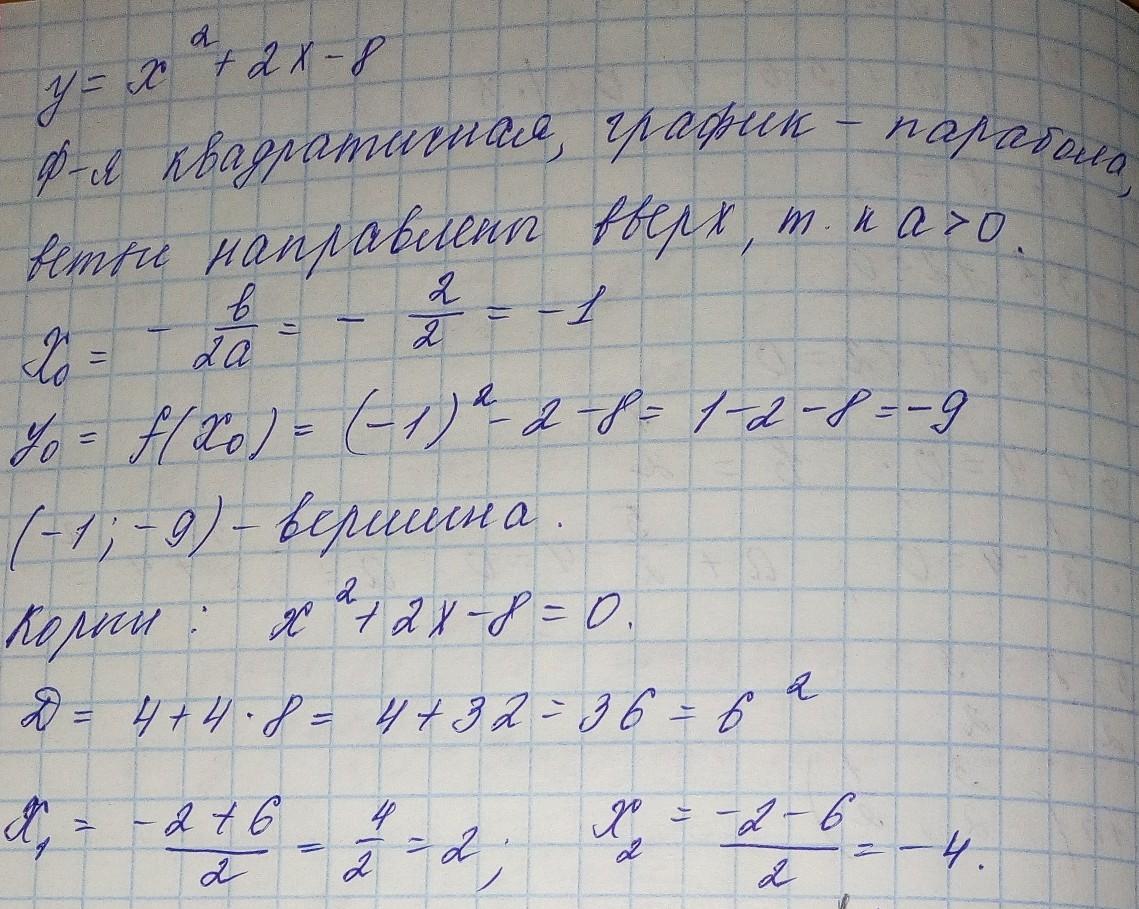 y = x² + 2x - 8
Ф-я квадратичная, график - парабола,
ветви направлены вверх, т. к a > 0.
x₀ = - в/2a = - 2/2 = -1
y₀ = f(x₀) = (-1)² - 2 - 8 = 1 - 2 - 8 = -9
(-1; -9) - вершина.
Корни: x² + 2x - 8 = 0.
D = 4 + 4 · 8 = 4 + 32 = 36 = 6²
x₁ = -2 + 6/2 = 4/2 = 2; x₂ = -2 - 6/2 = -4.